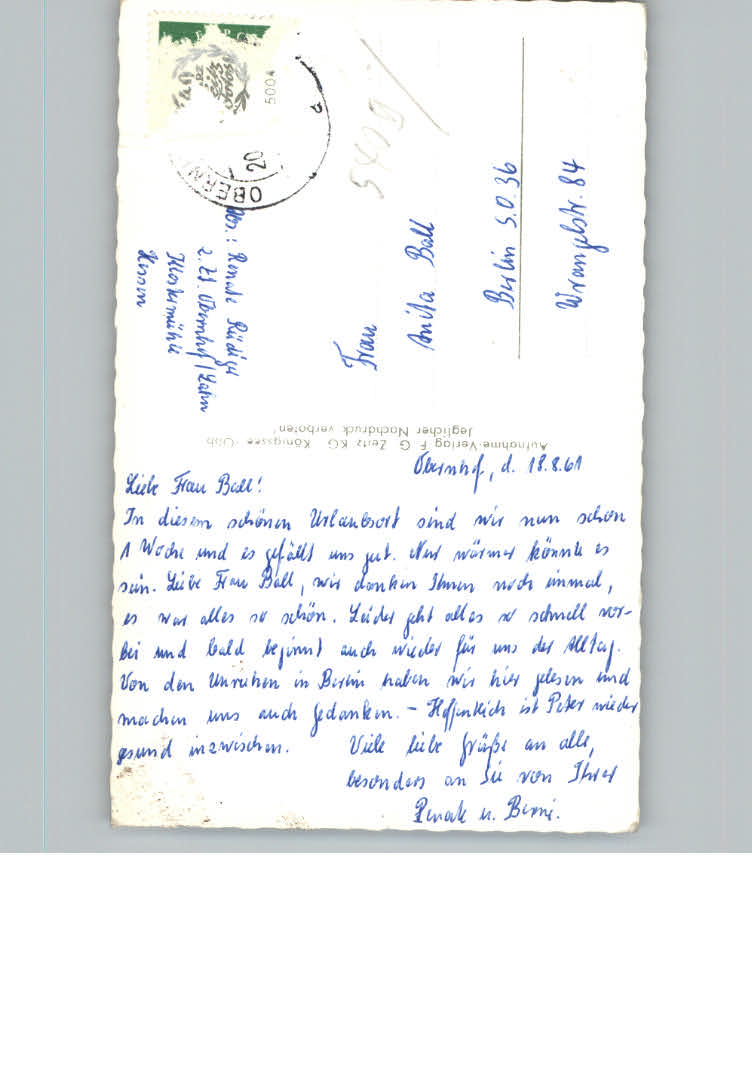 5004
OBERN
20
Abs.: Renate Rüdiger
z. Zt. Obernhof / Lahn
Klostermühle
Hessen
Frau
Anita Ball
Berlin S.O. 36
Wrangelstr. 84
Aufnahme-Verlag F. G. Zeitz KG Königssee
"Jeglicher Nachdruck verboten"
Obernhof, d. 18.8.61
Liebe Frau Ball!
In diesem schönen Urlaubsort sind wir nun schon
1 Woche und es gefällt uns gut. Nur wärmer könnte es
sein. Liebe Frau Ball, wir danken Ihnen noch einmal,
es war alles so schön. Leider geht alles so schnell vor-
bei und bald beginnt auch wieder für uns der Alltag.
Von den Unruhen in Berlin haben wir hier gelesen und
machen uns auch Gedanken. – Hoffentlich ist Peter wieder
gesund inzwischen. Viele liebe Grüße an alle,
besonders an Sie von Ihrer
Renate u. Berni.